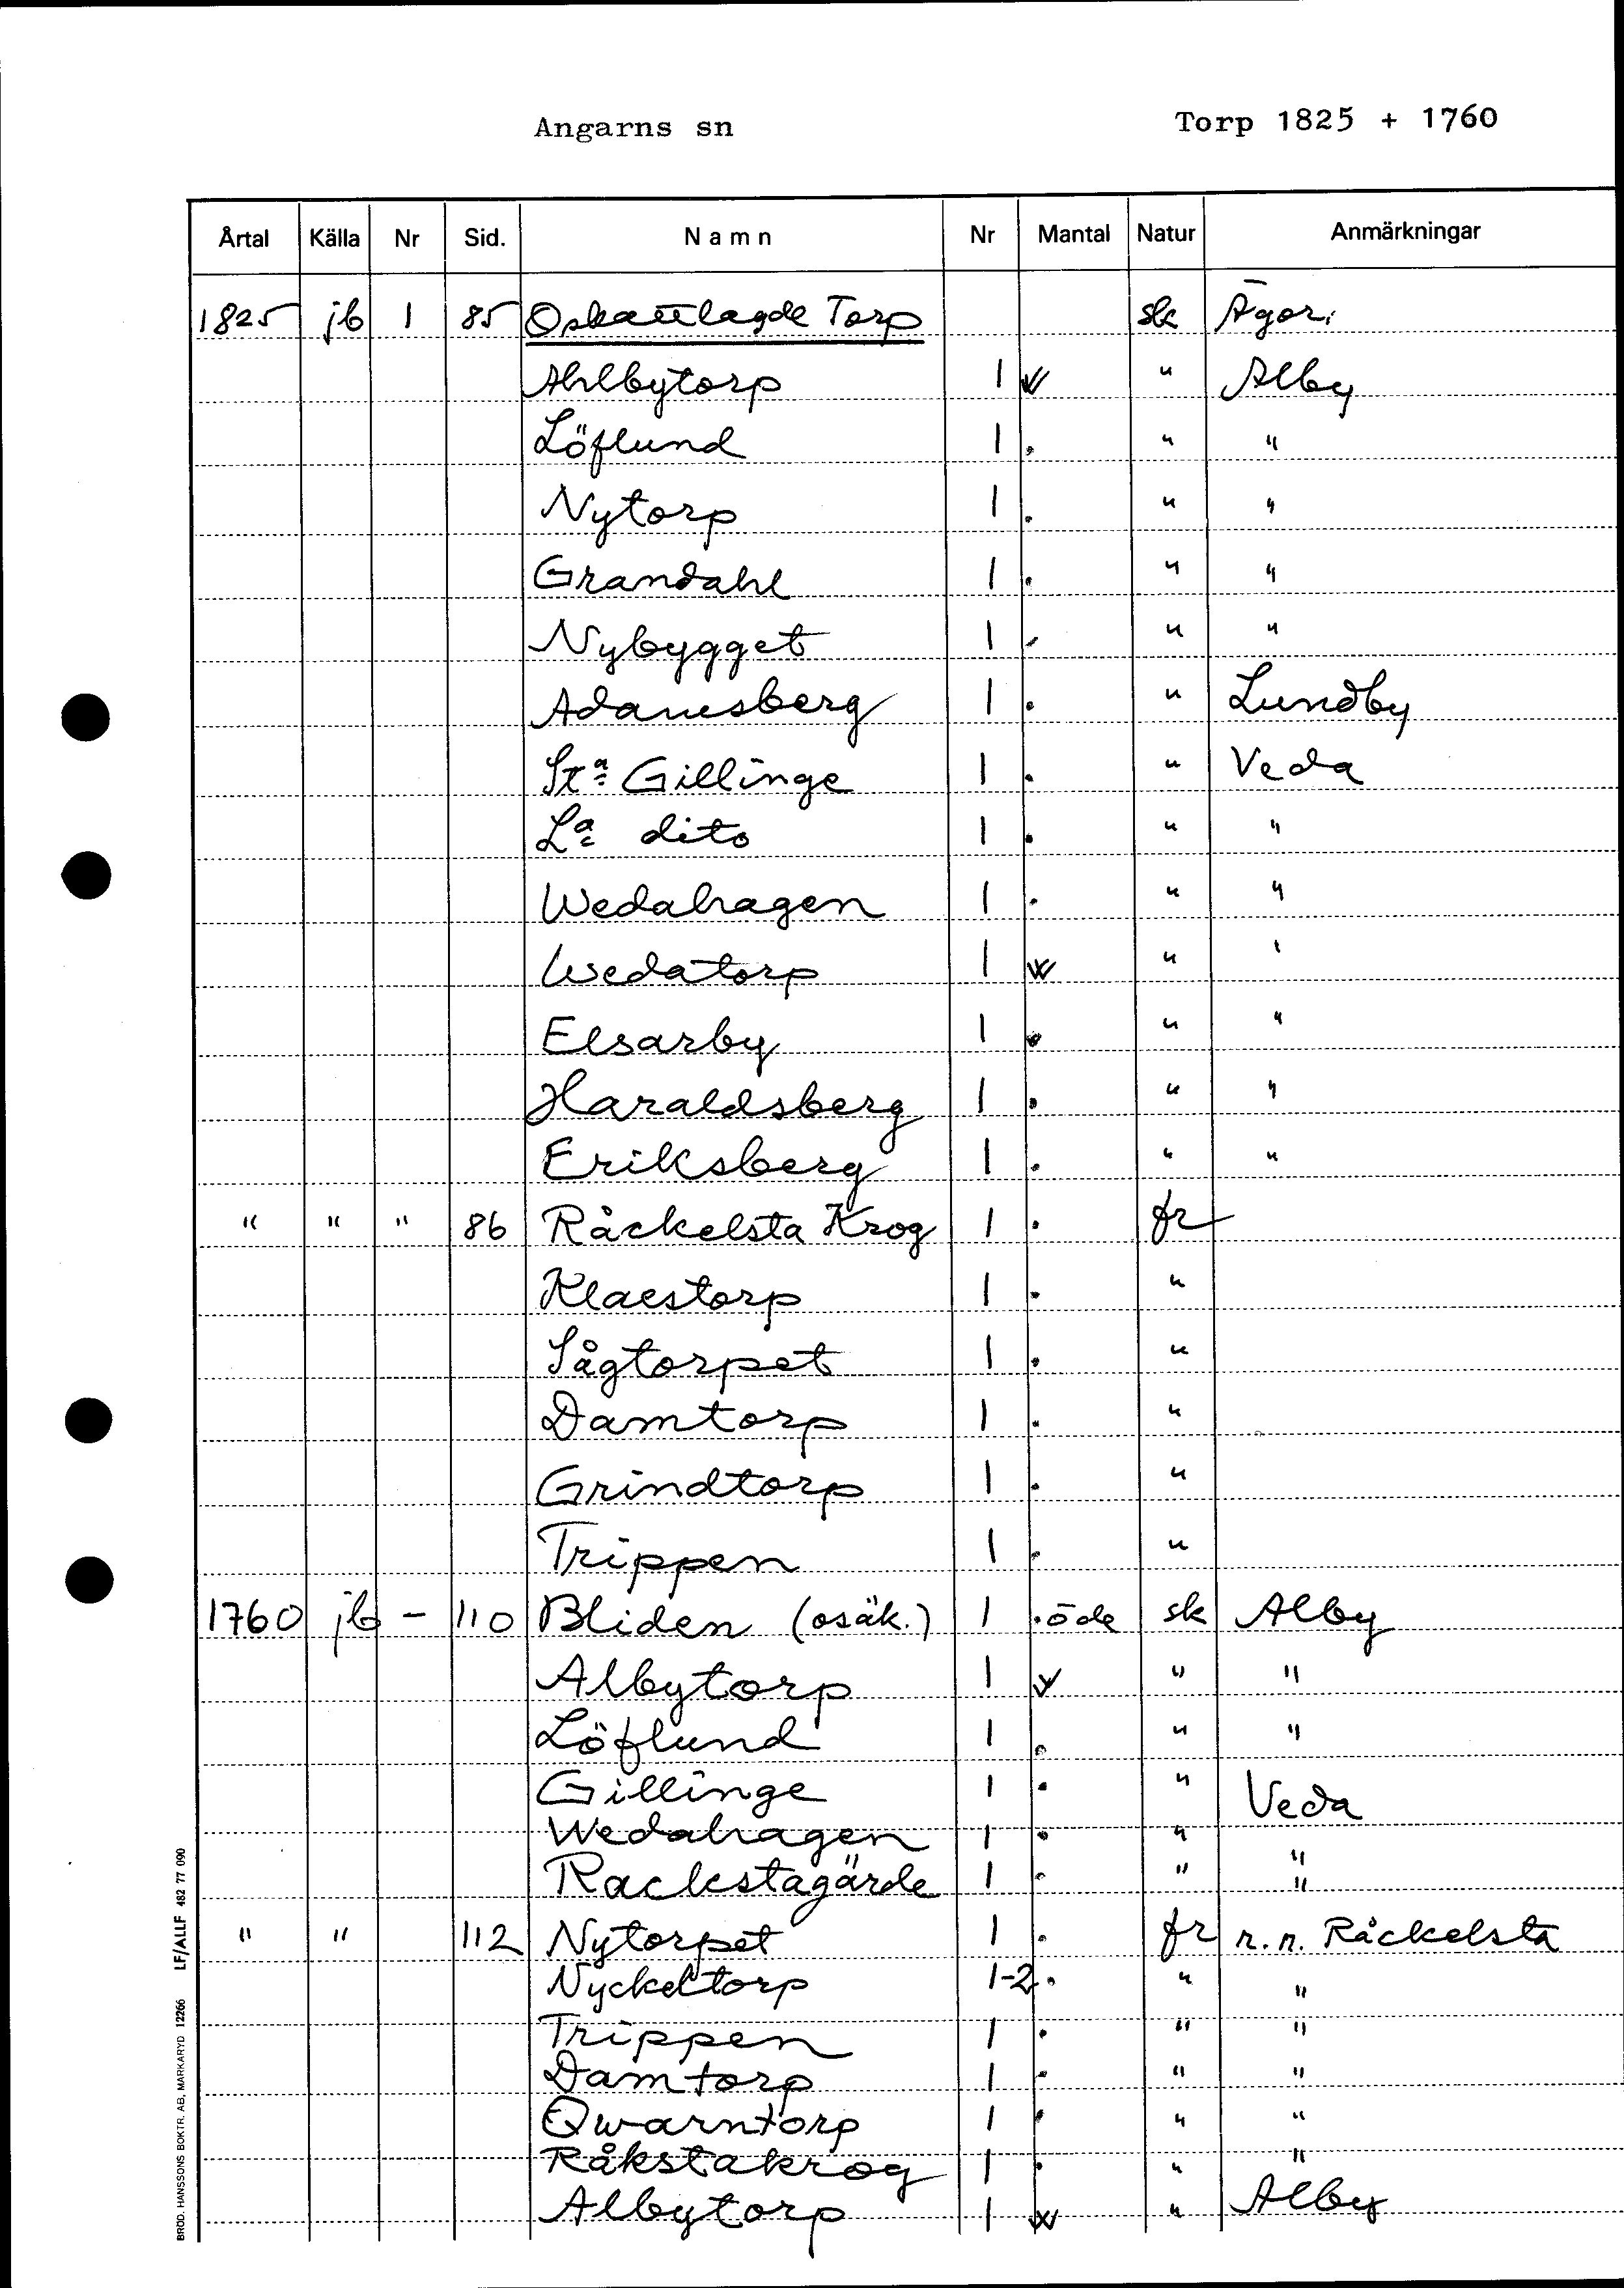 Angarns sn Torp 1825 + 1760
Årtal Källa Nr Sid. Namn Nr Mantal Natur Anmärkningar
1825 jb 1 85 Oskattlagde Torp sk Ägor:
Ahlbytorp 1 " Alby
Löflund 1 . " "
Nytorp 1 . " "
Grandahl 1 . " "
Nybygget 1 . " "
Adamsberg 1 . " Lundby
St.a Gillinge 1 . " Veda
L.a dito 1 . " "
Wedahagen 1 . " "
Wedatorp 1 " "
Elsarby 1 . " "
Haraldsberg 1 . " "
Eriksberg 1 . " "
" " " 86 Råckelsta Krog 1 . fr
Klaestorp 1 . "
Sågtorpet 1 . "
Damtorp 1 . "
Grindtorp 1 . "
Trippen 1 . "
1760 jb - 110 Bliden (osäk.) 1 . öde sk Alby
Albytorp 1 " "
Löflund 1 . " "
Gillinge 1 . " Veda
Wedahagen 1 . " "
Rackstagärde 1 . " "
" " 112 Nytorpet 1 . fr r.r. Råckelsta
Nyckeltorp 1-2 . " "
Trippen 1 . " "
Damtorp 1 . " "
Qwarntorp 1 . " "
Råkstakrog 1 . " "
Albytorp 1 " Alby
BRÖD. HANSSONS BOKTR. AB, MARKARYD 12266 LF/ALLF 482 77 090